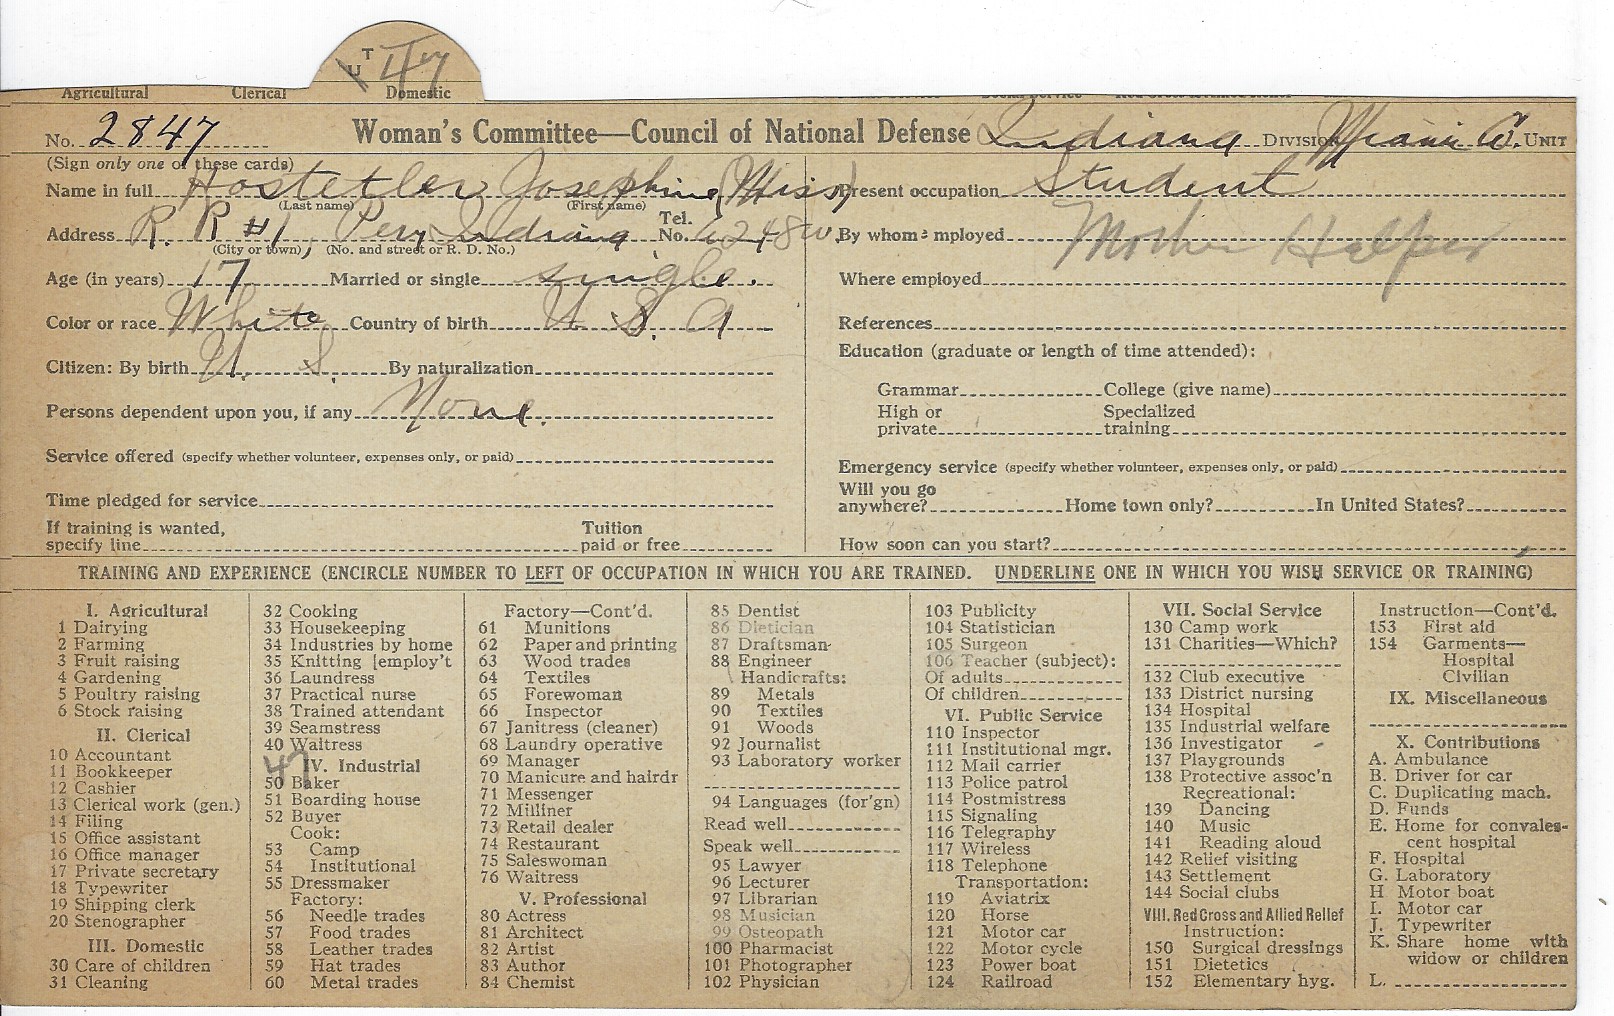 U T 47
Agricultural Clerical Domestic
No. 2847 Woman's Committee—Council of National Defense Indiana DIVISION Miami Co. UNIT
(Sign only one of these cards)
Name in full Hostetler Josephine (Miss)
(Last name) (First name)
Address R. R #1, Peru Indiana Tel. No. 6248W.
(City or town) (No. and street or R. D. No.)
Age (in years) 17 Married or single single.
Color or race White Country of birth U S. A
Citizen: By birth U. S. By naturalization
Persons dependent upon you, if any None.
Service offered (specify whether volunteer, expenses only, or paid)
Time pledged for service
If training is wanted, specify line Tuition paid or free
Present occupation Student
By whom employed Mother Helper
Where employed
References
Education (graduate or length of time attended):
Grammar College (give name)
High or private Specialized training
Emergency service (specify whether volunteer, expenses only, or paid)
Will you go anywhere? Home town only? In United States?
How soon can you start?
TRAINING AND EXPERIENCE (ENCIRCLE NUMBER TO LEFT OF OCCUPATION IN WHICH YOU ARE TRAINED. UNDERLINE ONE IN WHICH YOU WISH SERVICE OR TRAINING)
I. Agricultural
1 Dairying
2 Farming
3 Fruit raising
4 Gardening
5 Poultry raising
6 Stock raising
II. Clerical
10 Accountant
11 Bookkeeper
12 Cashier
13 Clerical work (gen.)
14 Filing
15 Office assistant
16 Office manager
17 Private secretary
18 Typewriter
19 Shipping clerk
20 Stenographer
III. Domestic
30 Care of children
31 Cleaning
32 Cooking
33 Housekeeping
34 Industries by home
35 Knitting [employ't
36 Laundress
37 Practical nurse
38 Trained attendant
39 Seamstress
40 Waitress
47
IV. Industrial
50 Baker
51 Boarding house
52 Buyer
Cook:
53 Camp
54 Institutional
55 Dressmaker
Factory:
56 Needle trades
57 Food trades
58 Leather trades
59 Hat trades
60 Metal trades
Factory—Cont'd.
61 Munitions
62 Paper and printing
63 Wood trades
64 Textiles
65 Forewoman
66 Inspector
67 Janitress (cleaner)
68 Laundry operative
69 Manager
70 Manicure and hairdr
71 Messenger
72 Milliner
73 Retail dealer
74 Restaurant
75 Saleswoman
76 Waitress
V. Professional
80 Actress
81 Architect
82 Artist
83 Author
84 Chemist
85 Dentist
86 Dietician
87 Draftsman
88 Engineer
Handicrafts:
89 Metals
90 Textiles
91 Woods
92 Journalist
93 Laboratory worker
94 Languages (for'gn)
Read well
Speak well
95 Lawyer
96 Lecturer
97 Librarian
98 Musician
99 Osteopath
100 Pharmacist
101 Photographer
102 Physician
103 Publicity
104 Statistician
105 Surgeon
106 Teacher (subject):
Of adults
Of children
VI. Public Service
110 Inspector
111 Institutional mgr.
112 Mail carrier
113 Police patrol
114 Postmistress
115 Signaling
116 Telegraphy
117 Wireless
118 Telephone
Transportation:
119 Aviatrix
120 Horse
121 Motor car
122 Motor cycle
123 Power boat
124 Railroad
VII. Social Service
130 Camp work
131 Charities—Which?
132 Club executive
133 District nursing
134 Hospital
135 Industrial welfare
136 Investigator
137 Playgrounds
138 Protective assoc'n
Recreational:
139 Dancing
140 Music
141 Reading aloud
142 Relief visiting
143 Settlement
144 Social clubs
VIII. Red Cross and Allied Relief
Instruction:
150 Surgical dressings
151 Dietetics
152 Elementary hyg.
Instruction—Cont'd.
153 First aid
154 Garments—
Hospital
Civilian
IX. Miscellaneous
X. Contributions
A. Ambulance
B. Driver for car
C. Duplicating mach.
D. Funds
E. Home for convales-
cent hospital
F. Hospital
G. Laboratory
H Motor boat
I. Motor car
J. Typewriter
K. Share home with
widow or children
L.